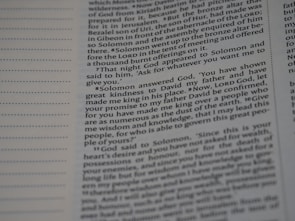 which Moses
wilderness. Now David
of God from
prepared for it, be
for it in Jerusalem. But
Bezalel son of Uri, the son of Hur, had made was
in Gibeon in front of the tabernacle of the LORD;
so Solomon and the assembly enquired of
Solomon went up to the bronze altar
fore the LORD in the tent of meeting and
a thousand burnt offerings on it.
That night God appeared to Solomon and
said to him, 'Ask for whatever you want me to
give you.'
Solomon answered God, 'You have shown
great kindness to David my father and have
made me king in his place. Now, LORD God, let
your promise to my father David be confirmed,
for you have made me king over a people who
are as numerous as the dust of the earth. Give
me wisdom and knowledge, that I may lead this
people, for who is able to govern this great peo-
ple of yours?'
God said to Solomon, 'Since this is your
heart's desire and you have not asked for wealth,
possessions or honour, nor for the death of
your enemies, and since you have not asked for a
long life but for wisdom and knowledge to gov-
ern my people over whom I have made you king,
therefore wisdom and knowledge will be given
you. And I will also give you wealth,